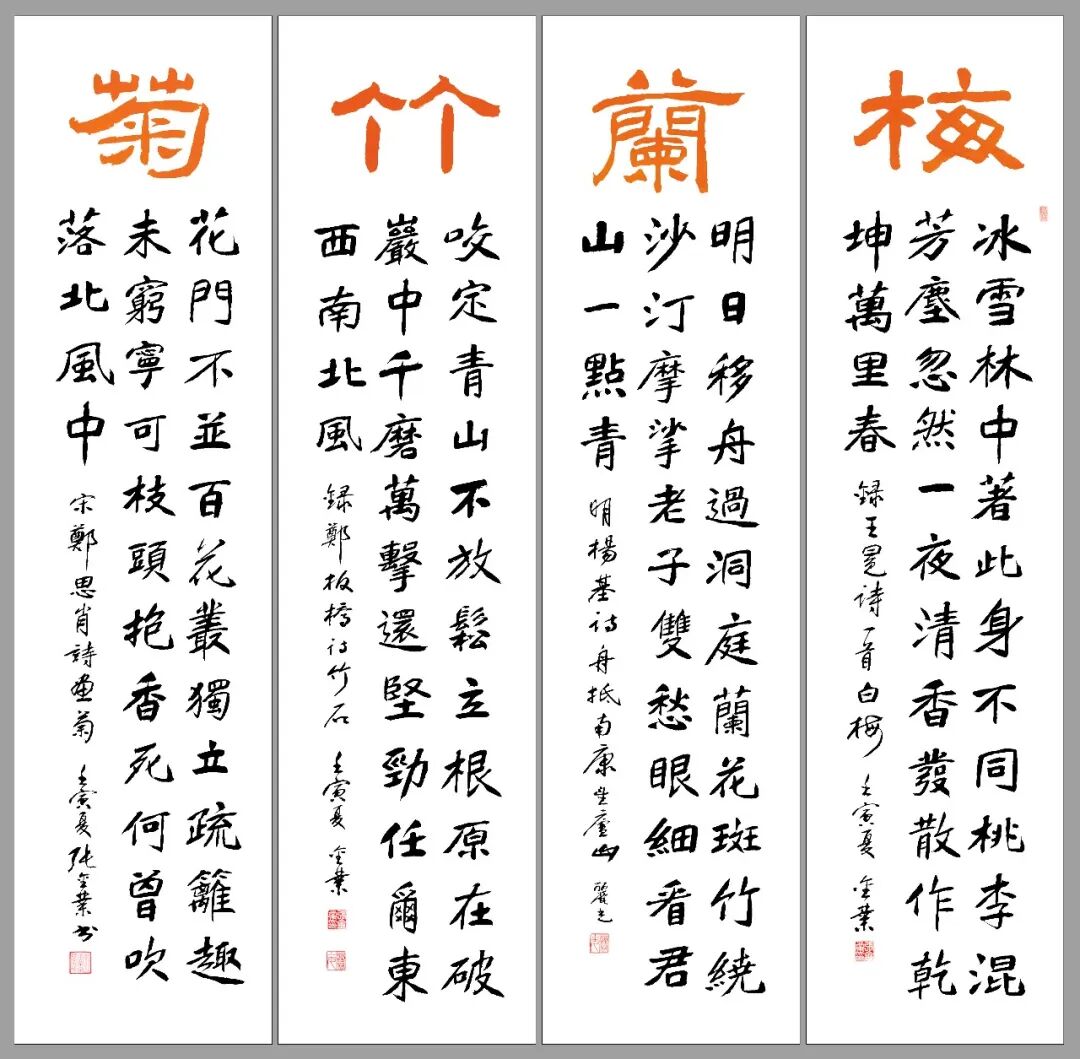 梅
冰雪林中著此身不同桃李混
芳塵忽然一夜清香發散作乾
坤萬里春
録王冕詩一首白梅 壬寅夏 金業
蘭
明日移舟過洞庭蘭花斑竹繞
沙汀摩挲老子雙愁眼細看君
山一點青
明楊基诗舟抵南康望廬山
竹
咬定青山不放鬆立根原在破
巖中千磨萬擊還堅勁任爾東
西南北風
録鄭板橋诗竹石 壬寅夏 金業
菊
花門不並百花叢獨立疏籬趣
未窮寧可枝頭抱香死何曾吹
落北風中
宋鄭思肖詩畫菊 壬寅夏張金業书